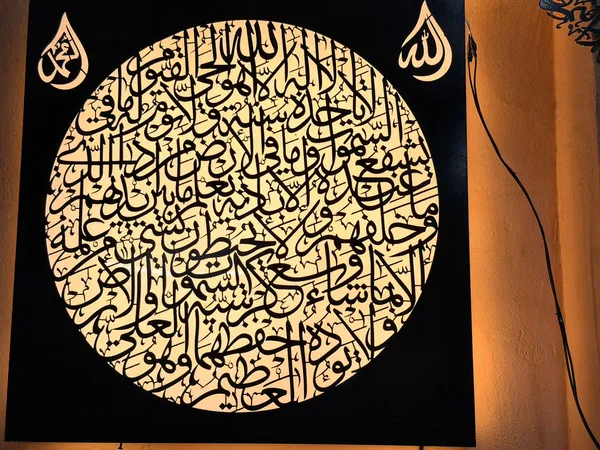 الله
محمد
الله لا إله إلا هو الحي القيوم
لا تأخذه سنة ولا نوم له ما في
السموات وما في الأرض من ذا الذي
يشفع عنده إلا بإذنه يعلم ما بين أيديهم
وما خلفهم ولا يحيطون بشيء من علمه
إلا بما شاء وسع كرسيه السموات والأرض
ولا يؤوده حفظهما وهو العلي
العظيم